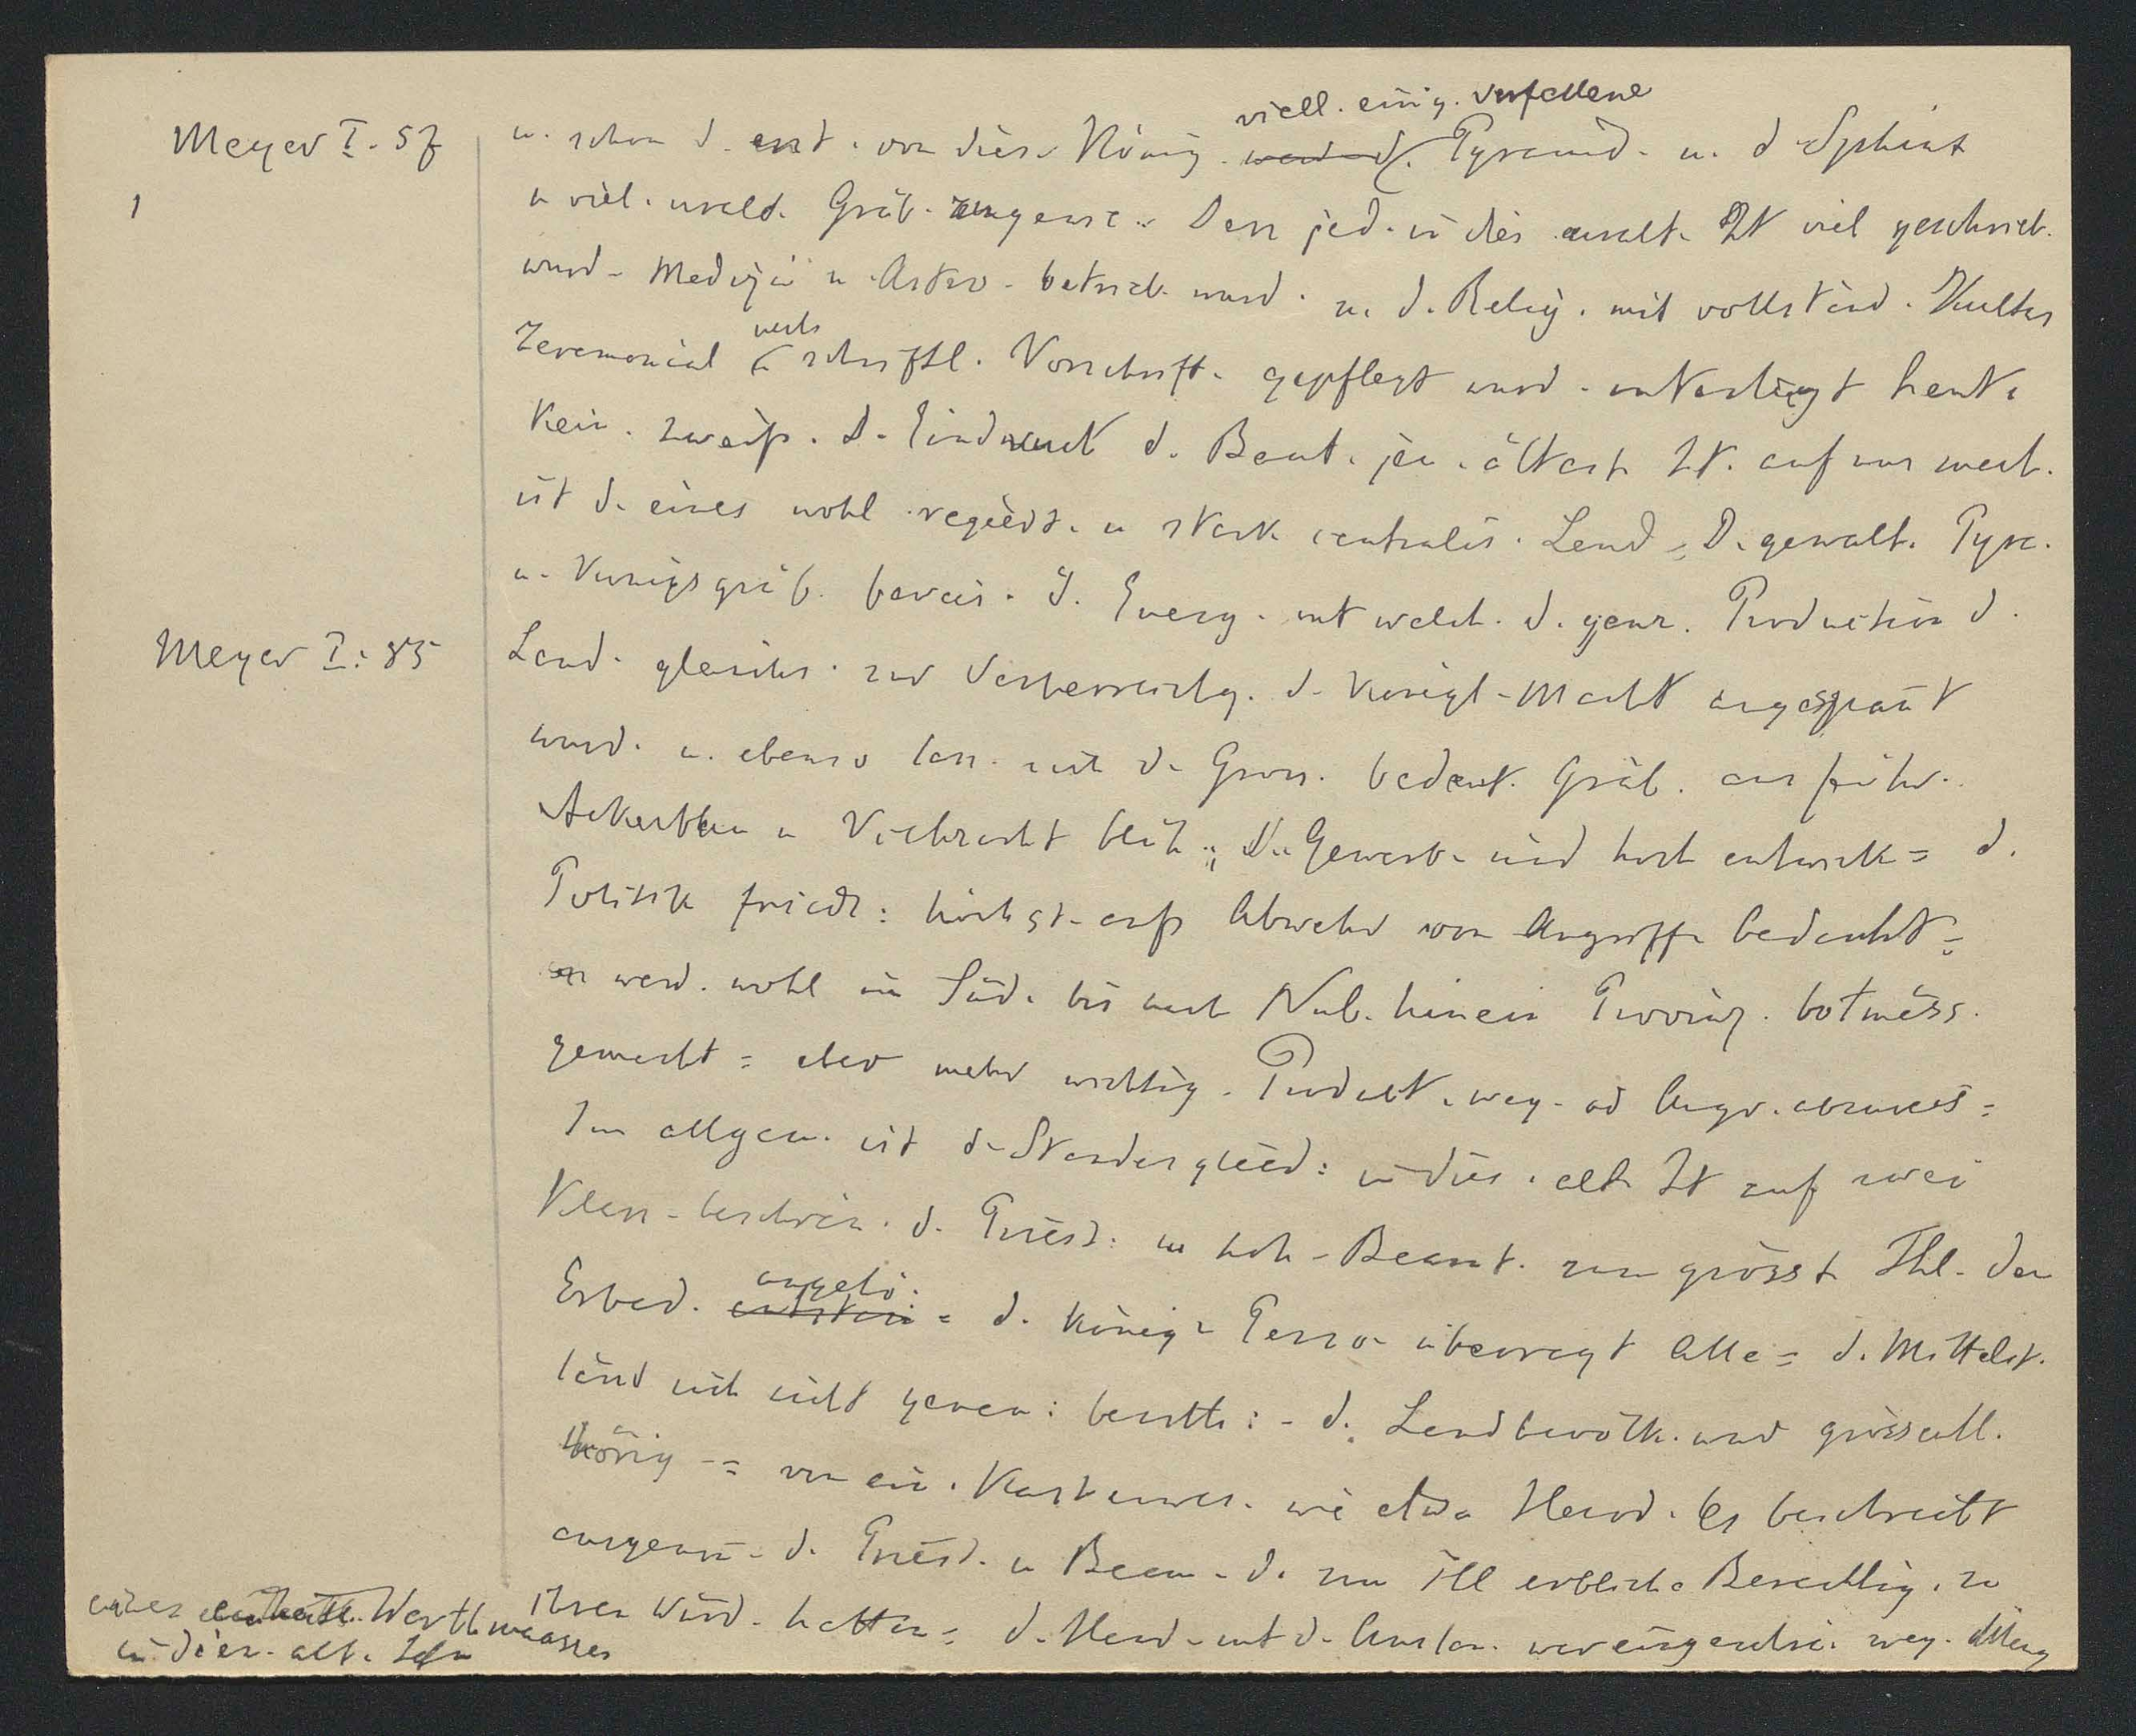 viell. einig. verfallene
Meyer I. 57
u. schon d. erst. von dies. König. werd d. Pyramid. u. d Sphinx
1
u viel. urald. Gräb. zugewie. Dass jed. in dies uralt. Zt viel geschrieb.
wurd. Medizin u. Astro. betrieb. wurd. u. d. Relig. mit vollständ. Kultus
nach
Zeremonial schriftl. Vorschrift. gepflegt wurd. unterliegt heute
kein. zweif. D. Eindruck d. Baut. jen. ältest Zt. auf uns mach.
ist d. eines wohl regiert. u stark centralis. Land = D. gewalt. Pyra.
u. Königsgräb. beweis. d. Energ. mit welch. d. ganz. Production d.
Meyer I: 85
Land. gleichs. zur Verherrlichg. d. königl. Macht angespannt
wurd. u. ebenso lass. sich d. Gross. bedeut. Gräb. ausführ.
Ackerbau u Viehzucht blüh. D. Gewerb. sind hoch entwick = d.
Politik friedl: höchst. aufs Abwehr von Angriffe bedacht =
es werd. wohl im Süd. bis nach Nub. hinein Provinz. botmäss.
gemacht = aber mehr wichtig. Product. weg. od Angr. abzuweis =
Im allgem. ist d. Standesglied: in dies. alt. Zt auf zwei
Klass. beschrän. d. Priest: u hoh. Beamt. zum grösst Thl. den
angehö.
Erbad. = d. König. Perso. überragt Alle = d. Mittelst.
länd sich nicht genau: beurth: - d. Landbevölk. war grössentl.
hörig = von ein. Kastenwes. wie etwa Herod. es beschreibt
ausgenom. d. Priest. u Beam. d. zum Thl erbliche Berechtig. zu
ihren Würd. hatten = d. Hand. mit d. Auslan. war eingeschrä. weg. Mang
eines einheitl. Werthmaasses
in dies. alt. Zeitn